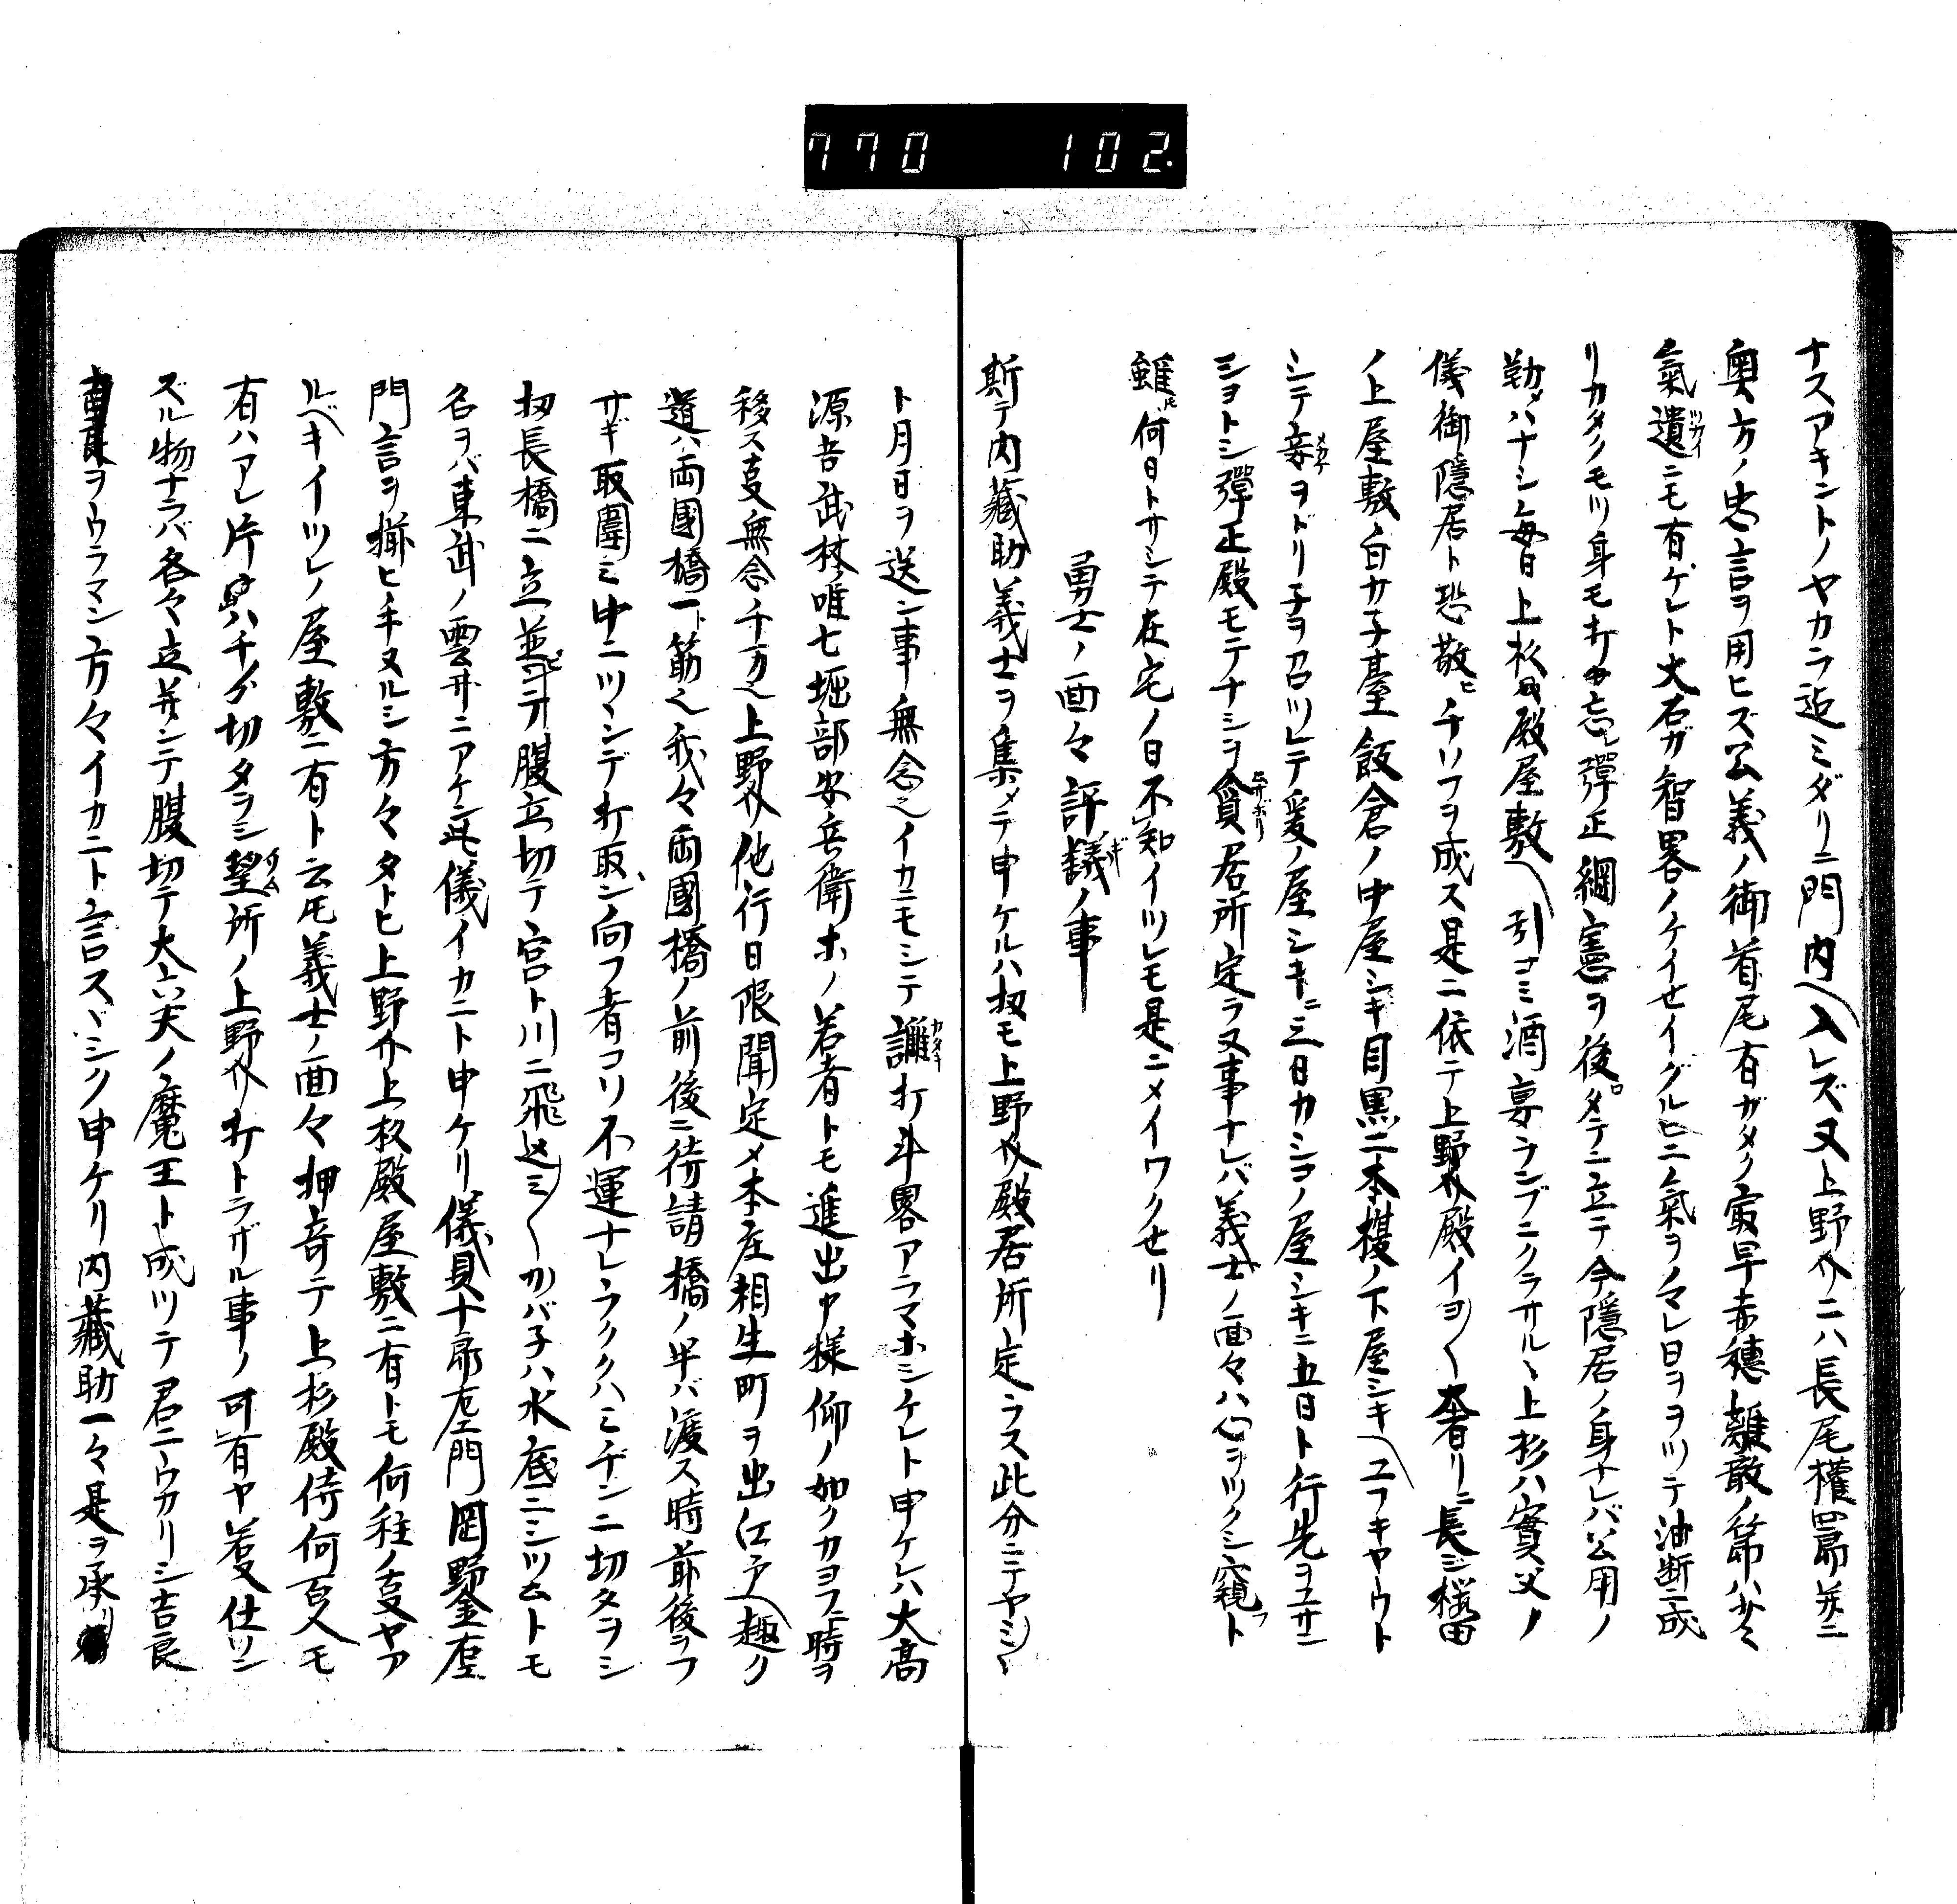 770 102
ナスアキントノヤカラ迄ミダリニ門内ヘ入レズ又上野介ニハ長尾權四郎并ニ
奥方ノ忠言ヲ用ヒズ公義ノ御首尾有ガタク最早赤穂離散ノ節ハサノミ
氣遣ニモ有ゲレト大石ガ智畧ノケイセイグルヒニ氣ヲノマレ日ヲヲツテ油断ニ成
リカタクモツ身モ打忘レ彈正綱憲ヲ後ロダテニ立テ今隠居ノ身ナレバ公用ノ
勤ハナシ毎日上杉殿屋敷ヘ引コミ酒宴ランブニクラサルヽ上杉ハ實父ノ
儀御隠居ト恐敬ヒチソフヲ成ス是ニ依テ上野介殿イヨ〱奢リニ長ジ桜田
ノ上屋敷白カ子臺飯倉ノ中屋シキ目黒二本榎ノ下屋シキヘユフキヤウト
シテ妾ヲドリ子ヲ召ツレテ爰ノ屋シキニ三日カシコノ屋シキニ五日ト行先ヲユサン
シヨトシ彈正殿モテナシヲ貪居所定ラヌ事ナレバ義士ノ面々ハ心ヲツクシ窺フト
雖モ何日トサシテ在宅ノ日不知イツレモ是ニメイワクせリ
勇士ノ面々評議ノ事
斯テ内藏助義士ヲ集メテ申ケルハ扨モ上野介殿居所定ラス此分ニテヤミ〱
ト月日ヲ送ン事無念也イカニモシテ讎打斗畧アラマホシケレト申ケレハ大高
源吾武林唯七堀部安兵衛ホノ若者トモ進出申様仰ノ如クカヨフニ時ヲ
移ス事無念千万也上野介他行日限聞定メ本庄相生町ヲ出江戸ヘ趣ク
道ハ両國橋一ト筋也我々両國橋ノ前後ニ待請橋ノ半バ渡ス時前後ヲフ
サギ取圍ミ中ニツヽンデ打取ン向フ者コソ不運ナレラクハミヂンニ切タヲシ
扨長橋ニ立並ヒテ腹立切テ宮ト川ニ飛込ミ〱カバ子ハ水底ニシツムトモ
名ヲバ東武ノ雲井ニアケン此儀イカニト申ケリ儀貝十郎左エ門岡野金右エ
門言ヲ揃ヒ手ヌルシ方々タトヒ上野介上杉殿屋敷ニ有トモ何程ノ事ヤア
ルベキイツレノ屋敷ニ有ト云氏義士ノ面々押寄テ上杉殿侍何百人モ
有ハアレ片ハチカラ切タヲシ望所ノ上野介打トラザル事ノ可有ヤ若又仕ソン
ズル物ナラバ各々立并ンテ腹切テ大六天ノ魔王ト成ツテ君ニウカリシ吉良
ヲウラマン方々イカニト言スヽシク申ケリ内藏助一々是ヲ承リ